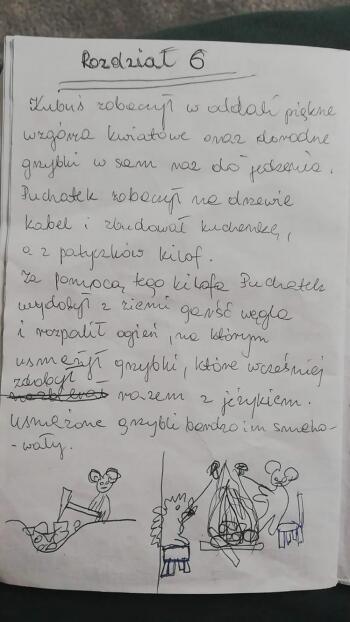 Rozdział 6
Kubuś zobaczył w oddali piękne
wzgórza kwiatowe oraz dorodne
grzybki w sam raz do jedzenia.
Puchatek zobaczył na drzewie
kabel i zbudował kuchenkę,
a z patyczków kilof.
Za pomocą tego kilofa Puchatek
wydobył z ziemi garść węgla
i rozpalił ogień, na którym
usmażył grzybki, które wcześniej
zdobył
razem z jeżykiem.
Usmażone grzybki bardzo im smako-
-wały.